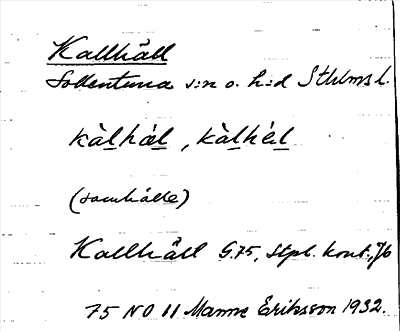 Kallhäll
Sollentuna s:n o. h:d Sthlms l.
kàlhǽl, kàlhèl
(samhälle)
Kallhäll G.75, Stpl. kont.,
75 NO 11 Manne Eriksson 1932.